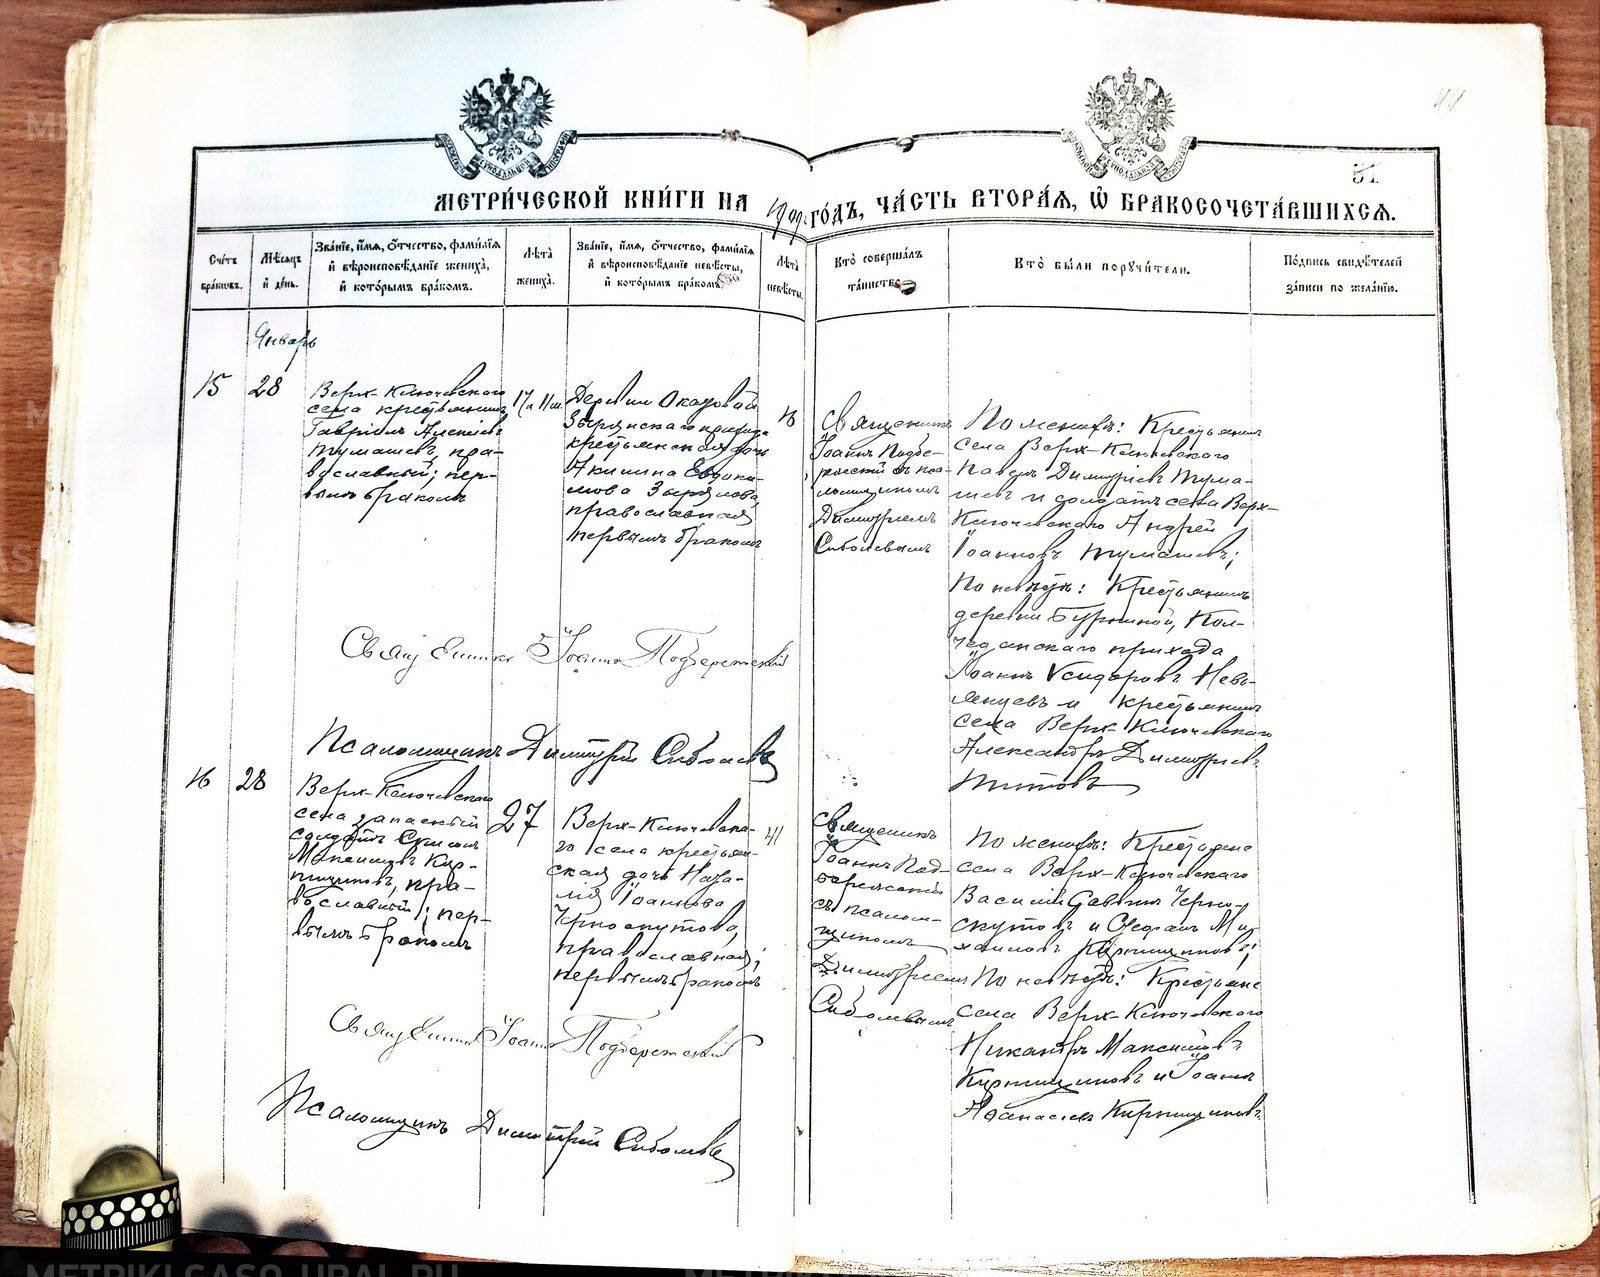 МЕТРИ́ЧЕСКОЙ КНИ́ГИ НА 1909 ГО́ДЪ, ЧА́СТЬ ВТОРА́Я, Ѡ БРАКОСОЧЕТА́ВШИХСЯ.
51
Сче́тъ
бра́ковъ.
Мѣ́сяцъ
и҆ де́нь.
Зва́нїе, и҆́мѧ, ѻ҆́тчество, фами́лїѧ
и҆ вѣроисповѣ́данїе жениха̀,
и҆ кото́рымъ бра́комъ.
Лѣ́та
жениха̀.
Зва́нїе, и҆́мѧ, ѻ҆́тчество, фами́лїѧ
и҆ вѣроисповѣ́данїе невѣ́сты,
и҆ кото́рымъ бра́комъ.
Лѣ́та
невѣ́сты.
Кто̀ соверша́лъ
та́инство.
Кто̀ бы́ли поручи́тели.
По́дпись свидѣ́телей
за́писи по жела́нїю.
Январь
15
28
Верх-Ключевскаго
села крестьянинъ
Гавріилъ Алексѣевъ
Тумашевъ, пра-
вославный; пер-
вымъ бракомъ
Деревни
Зырянскаго прихода
крестьянская дочь
Акилина Евдоки-
мова Зырянова,
православная
первымъ бракомъ
Священникъ
Іоаннъ Подбе-
резскій съ пса-
ломщикомъ
Димитріемъ
Соболевымъ
По женихѣ: Крестьянинъ
села Верх-Ключевскаго
Павелъ Димитріевъ Тума-
шевъ и солдатъ села Верх-
Ключевскаго Андрей
Іоанновъ Тумашевъ;
По невѣстѣ: Крестьянинъ
деревни Бурниной, Кол-
чеданскаго прихода
Іоаннъ Исидоровъ Невь-
янцевъ и крестьянинъ
села Верх-Ключевскаго
Александръ Димитріевъ
Титовъ
Священникъ Іоаннъ Подберезскій
Псаломщикъ Димитрій Соболевъ
16
28
Верх-Ключевскаго
села запасный
солдатъ
Максимовъ Кир-
пищиковъ, пра-
вославный; пер-
вымъ бракомъ
27
Верх-Ключевска-
го села крестьян-
ская дочь Ната-
лія Іоаннова
Черноскутова,
православная;
первымъ бракомъ
Священникъ
Іоаннъ Под-
березскій
съ псалом-
щикомъ
Димитріемъ
Соболевымъ
По женихѣ: Крестьяне
села Верх-Ключевскаго
Василій Саввинъ Черно-
скутовъ и Стефанъ Ми-
хаиловъ Кирпищиковъ;
По невѣстѣ: Крестьяне
села Верх-Ключевскаго
Никандръ Максимовъ
Кирпищиковъ и Іоаннъ
Аѳанасіевъ Кирпищиковъ.
Священникъ Іоаннъ Подберезскій
Псаломщикъ Димитрій Соболевъ